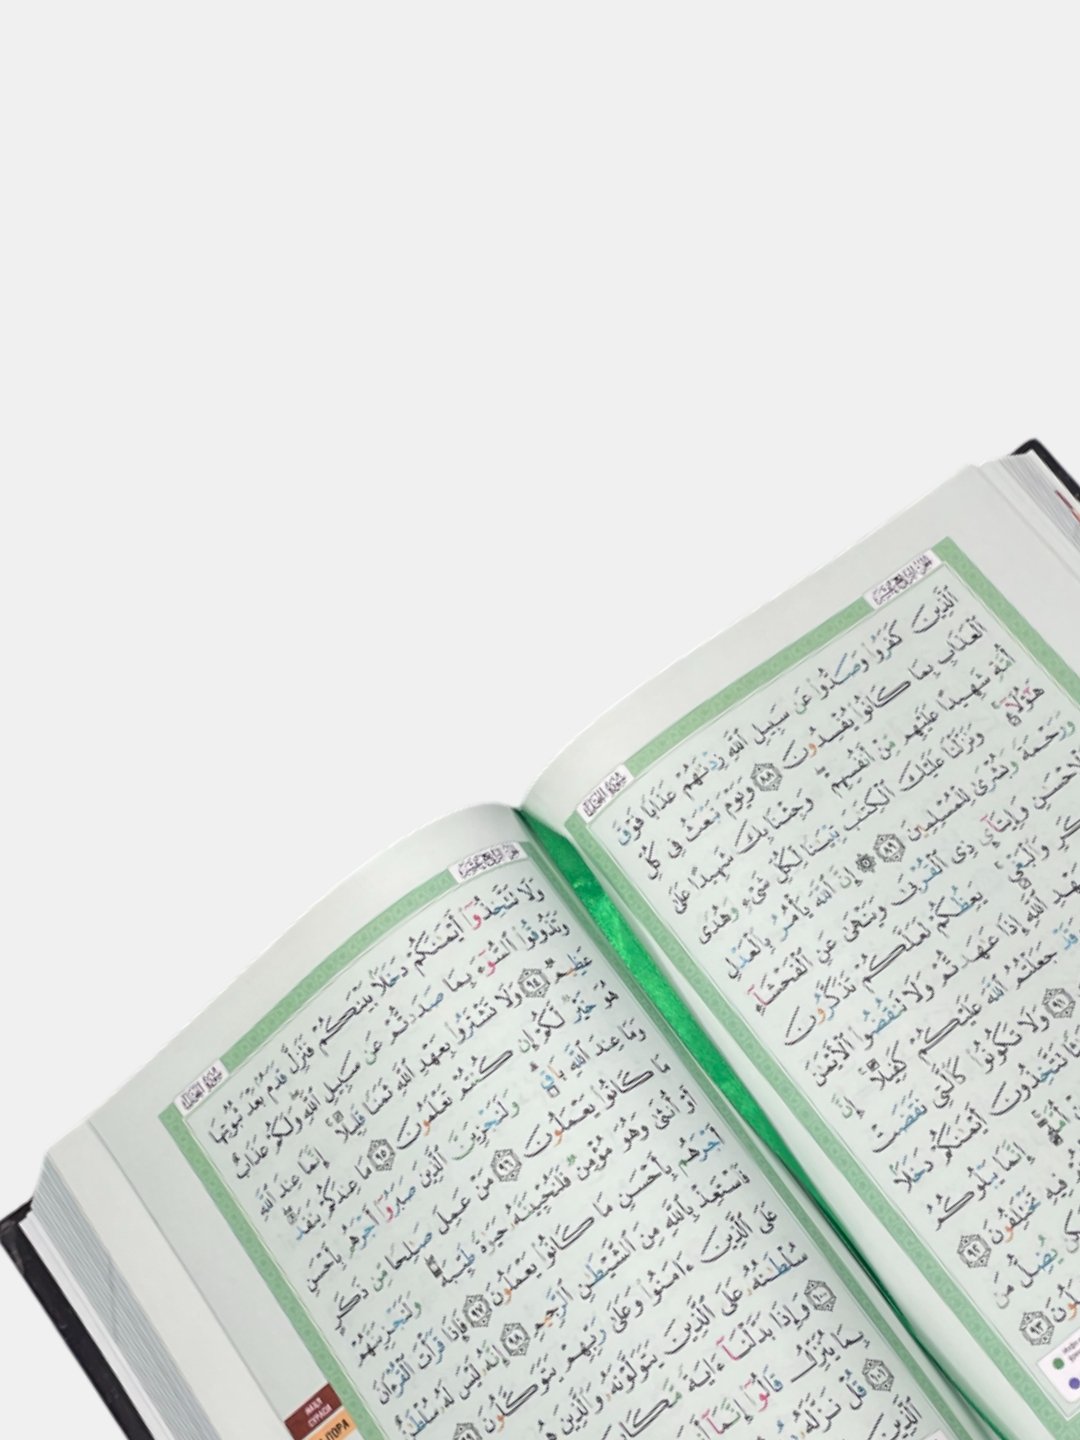 الجزء الرابع عشر
سورة النحل
ٱلَّذِينَ كَفَرُوا۟ وَصَدُّوا۟ عَن سَبِيلِ ٱللَّهِ زِدْنَٰهُمْ عَذَابًا فَوْقَ
ٱلْعَذَابِ بِمَا كَانُوا۟ يُفْسِدُونَ ٨٨ وَيَوْمَ نَبْعَثُ فِى كُلِّ
أُمَّةٍ شَهِيدًا عَلَيْهِم مِّنْ أَنفُسِهِمْ ۖ وَجِئْنَا بِكَ شَهِيدًا عَلَىٰ
هَٰٓؤُلَآءِ ۚ وَنَزَّلْنَا عَلَيْكَ ٱلْكِتَٰبَ تِبْيَٰنًا لِّكُلِّ شَىْءٍ وَهُدًى
وَرَحْمَةً وَبُشْرَىٰ لِلْمُسْلِمِينَ ٨٩ ۞ إِنَّ ٱللَّهَ يَأْمُرُ بِٱلْعَدْلِ
وَٱلْإِحْسَٰنِ وَإِيتَآئِ ذِى ٱلْقُرْبَىٰ وَيَنْهَىٰ عَنِ ٱلْفَحْشَآءِ
وَٱلْبَغْىِ ۚ يَعِظُكُمْ لَعَلَّكُمْ تَذَكَّرُونَ
ٱللَّهِ إِذَا عَٰهَدتُّمْ وَلَا تَنقُضُوا۟ ٱلْأَيْمَٰنَ
وَقَدْ جَعَلْتُمُ ٱللَّهَ عَلَيْكُمْ كَفِيلًا ۚ إِنَّ
٩١ وَلَا تَكُونُوا۟ كَٱلَّتِى نَقَضَتْ
تَتَّخِذُونَ أَيْمَٰنَكُمْ دَخَلًۢا
أُمَّةٍ ۚ إِنَّمَا يَبْلُوكُمُ
فِيهِ تَخْتَلِفُونَ ٩٢
يُضِلُّ مَن
٩٣
الجزء الرابع عشر
سورة النحل
وَلَا تَتَّخِذُوٓا۟ أَيْمَٰنَكُمْ دَخَلًۢا بَيْنَكُمْ فَتَزِلَّ قَدَمٌۢ بَعْدَ ثُبُوتِهَا
وَتَذُوقُوا۟ ٱلسُّوٓءَ بِمَا صَدَدتُّمْ عَن سَبِيلِ ٱللَّهِ ۖ وَلَكُمْ عَذَابٌ
عَظِيمٌ ٩٤ وَلَا تَشْتَرُوا۟ بِعَهْدِ ٱللَّهِ ثَمَنًا قَلِيلًا ۚ إِنَّمَا عِندَ ٱللَّهِ
هُوَ خَيْرٌ لَّكُمْ إِن كُنتُمْ تَعْلَمُونَ ٩٥ مَا عِندَكُمْ يَنفَدُ ۖ
وَمَا عِندَ ٱللَّهِ بَاقٍ ۗ وَلَنَجْزِيَنَّ ٱلَّذِينَ صَبَرُوٓا۟ أَجْرَهُم بِأَحْسَنِ
مَا كَانُوا۟ يَعْمَلُونَ ٩٦ مَنْ عَمِلَ صَٰلِحًا مِّن ذَكَرٍ
أَوْ أُنثَىٰ وَهُوَ مُؤْمِنٌ فَلَنُحْيِيَنَّهُۥ حَيَوٰةً طَيِّبَةً ۖ وَلَنَجْزِيَنَّهُمْ
أَجْرَهُم بِأَحْسَنِ مَا كَانُوا۟ يَعْمَلُونَ ٩٧ فَإِذَا قَرَأْتَ ٱلْقُرْءَانَ
فَٱسْتَعِذْ بِٱللَّهِ مِنَ ٱلشَّيْطَٰنِ ٱلرَّجِيمِ ٩٨ إِنَّهُۥ لَيْسَ لَهُۥ سُلْطَٰنٌ
عَلَى ٱلَّذِينَ ءَامَنُوا۟ وَعَلَىٰ رَبِّهِمْ يَتَوَكَّلُونَ ٩٩
سُلْطَٰنُهُۥ عَلَى ٱلَّذِينَ يَتَوَلَّوْنَهُۥ وَٱلَّذِينَ هُم
١٠٠ وَإِذَا بَدَّلْنَآ ءَايَةً مَّكَانَ
بِمَا يُنَزِّلُ قَالُوٓا۟ إِنَّمَآ
١٠١ قُلْ نَزَّلَهُۥ
ٱلَّذِينَ
НАҲЛ
СУРАСИ
ПОРА